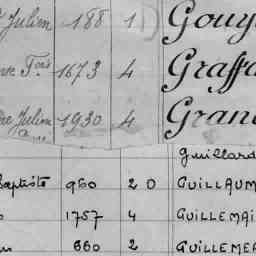 Julien 188 1 Gouy
Fois 1673 4 Graffa
Julien 1930 4 Gran
Guillard
Baptiste 960 20 GUILLAUM
1757 4 GUILLEMAI
660 2 GUILLEMER